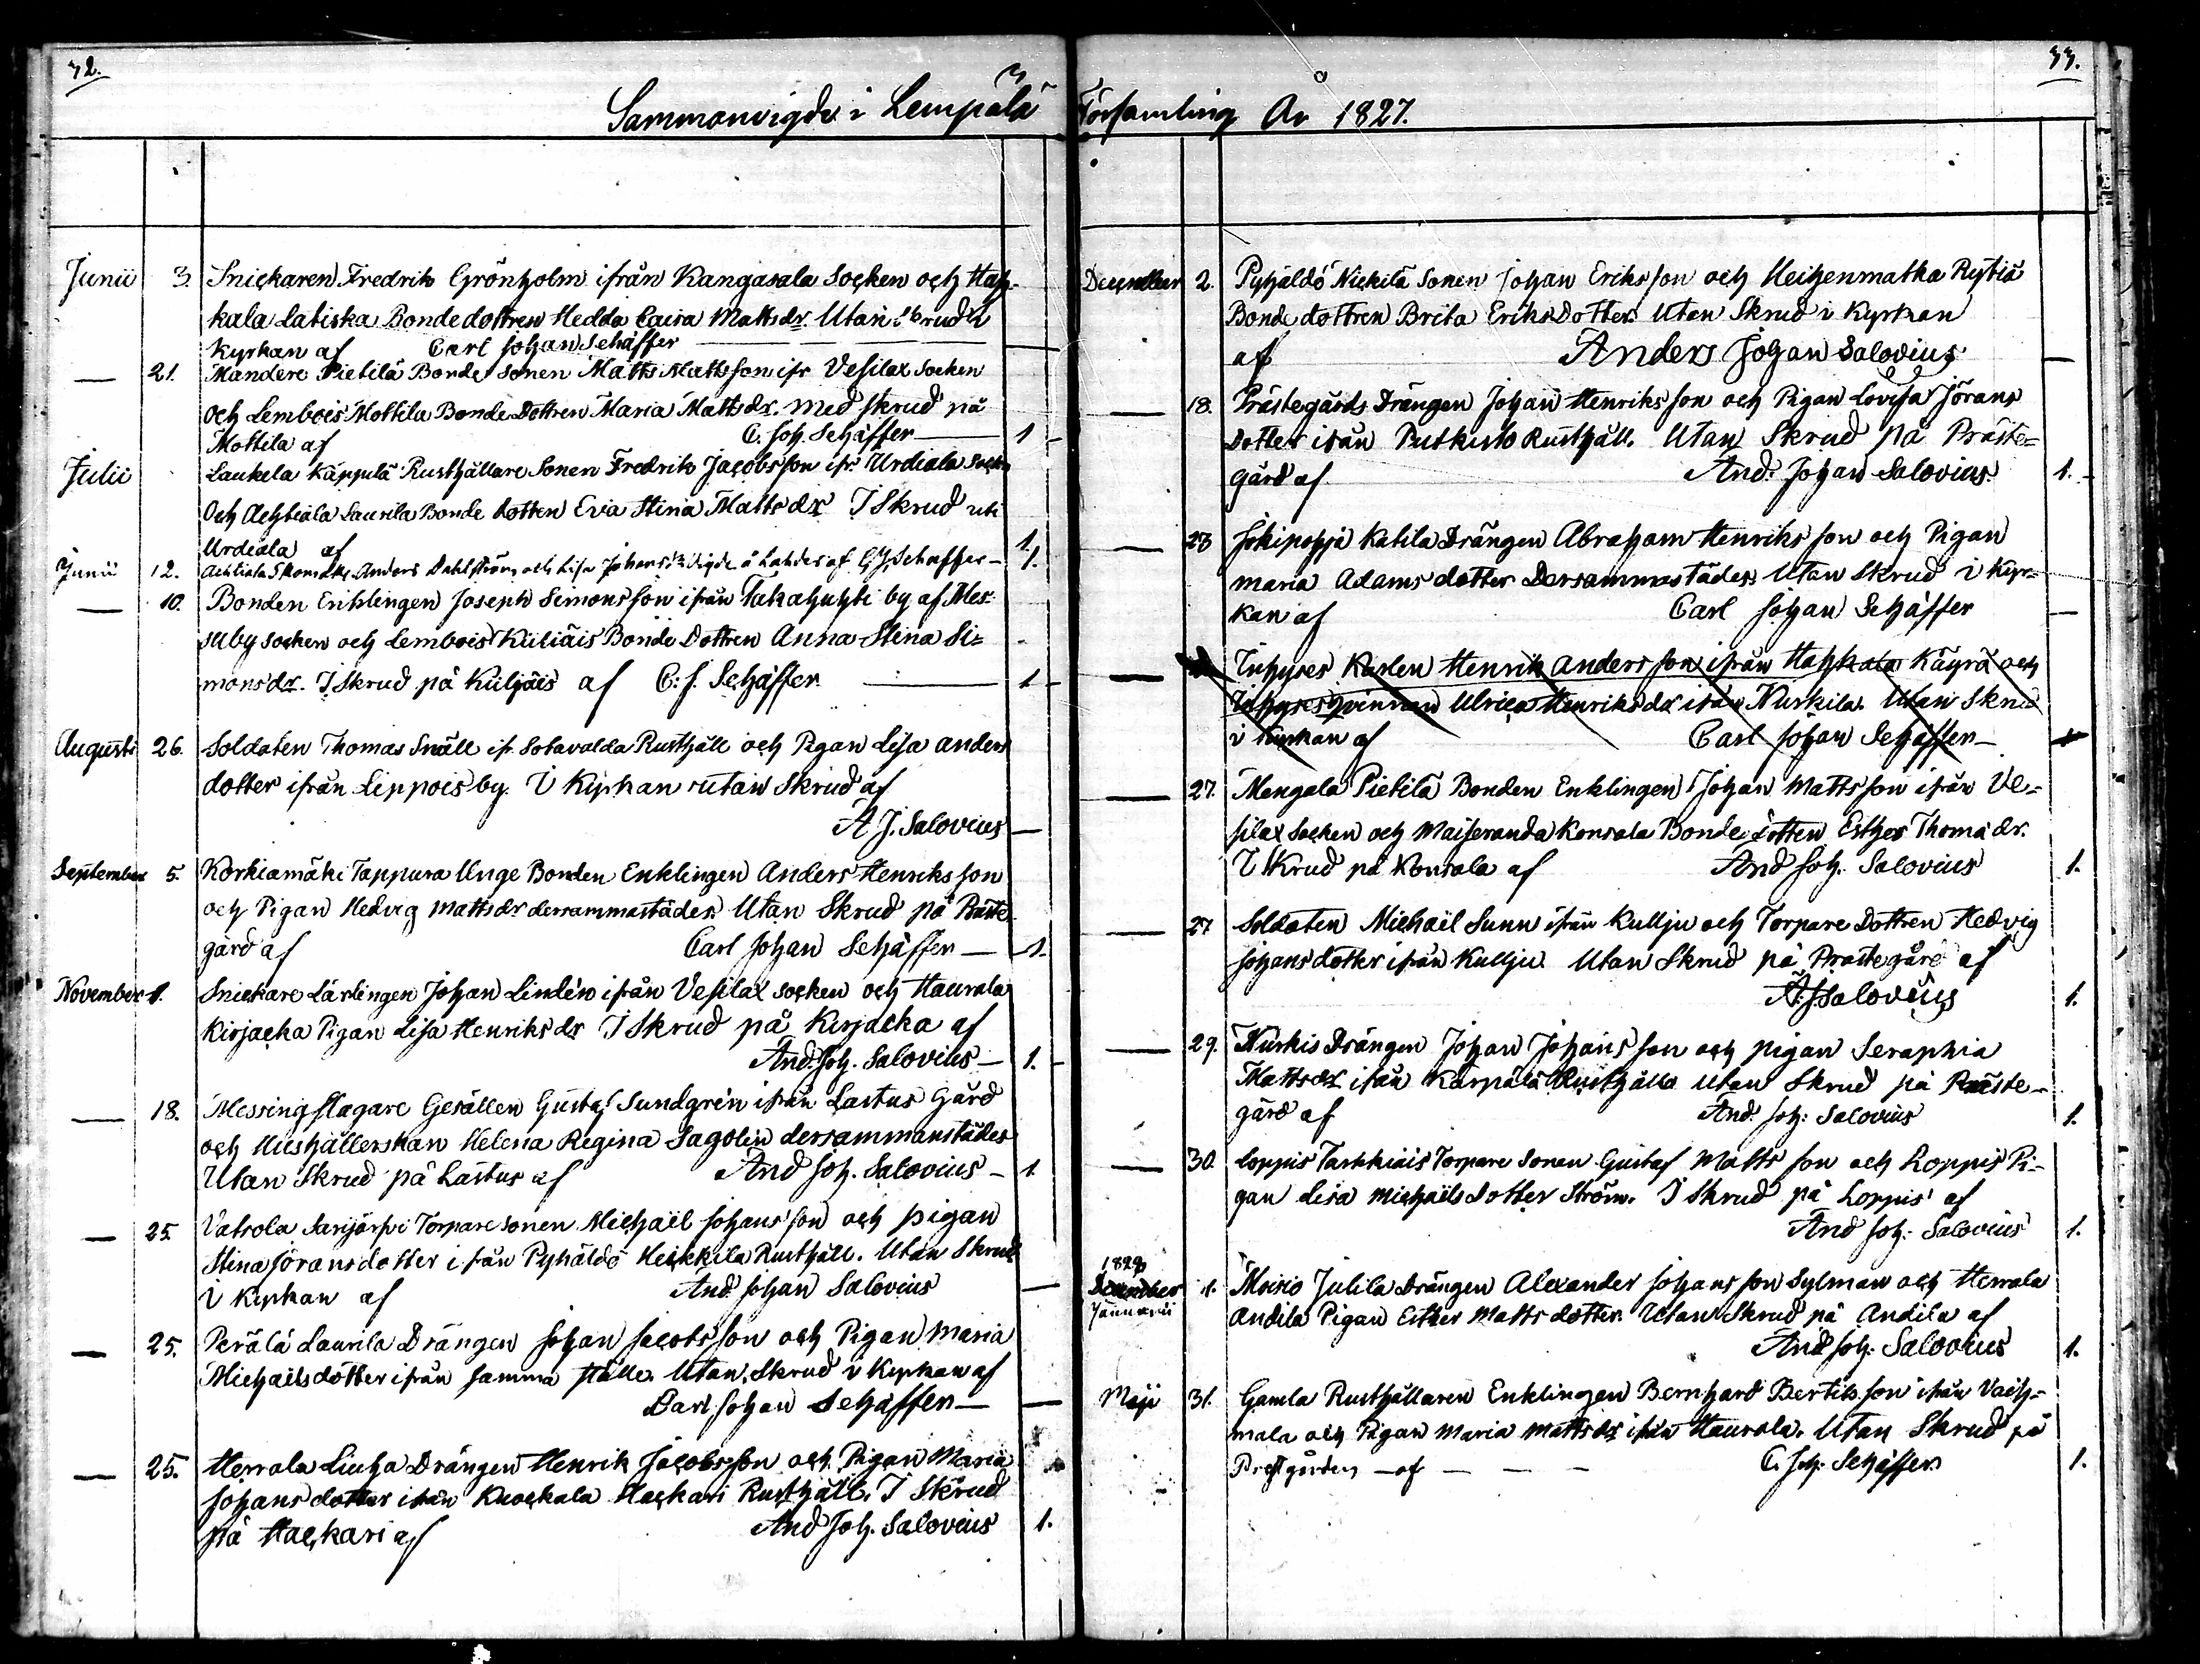 32.
Sammanvigde i Lempälä
Junii 3. Snickaren Fredrik Grönholm ifrån Kangasala Socken och Hah-
kala Latiska Bondedottren Hedda Caisa Mattsdr. Utan Skrud i
Kyrkan af Carl Johan Schäffer
— 21. Mandere Pietilä Bonde Sonen Matts Mattsson ifr Vesilax Socken
och Lembois Mottila Bonde Dottren Maria Mattsdr. med skrud på
Mottila af C. Joh. Schäffer — 1
Julii Laukela Käppulä Rusthållare Sonen Fredrik Jacobsson ifr. Urdiala Sock
Och Achtiala Saurila Bonde dotten Eva Stina Mattsdr I Skrud uti
Urdiala af 1.
Junii 12. Achtiala Anders Dahlström och Lisa Johansdr Vigde å Lahdes af C J Schäffer — 1.
— 10. Bonden Enklingen Joseph Simonsson ifrån Takahuhti by af Mes-
suby socken och Lembois Kuliäis Bonde Dottren Anna Stina Si=
monsdr. I Skrud på Kuljäis af C: J. Schäffer — 1
Augusti 26. Soldaten Thomas Snäll ifr. Sotavalda Rusthåll och Pigan Lisa anders
dotter ifrån Lippois by. I Kyrkan utan Skrud af
A J. Salovius —
September 5. Korkiamäki Tappura Unge Bonden Enklingen Anders Henriksson
och Pigan Hedvig Mattsdr dersammastädes Utan Skrud på Präste-
gård af Carl Johan Schäffer — 1.
November 1. Snickare Lärlingen Johan Lindén ifrån Vesilax socken och Haurala
Kirjacka Pigan Lisa Henriksdr I Skrud på Kirjacka af
And. Joh. Salovius — 1.
— 18. Messingslagare Gesällen Gustaf Sundgrén ifrån Lastus Gård
och Hushållerskan Helena Regina Sagolin dersammanstädes
Utan Skrud på Lastus af And Joh. Salovius — 1
— 25. Vatsola Sarijärfvi Torpare sonen Michaël Johansson och pigan
Stina Jöransdotter ifrån Pyhäldö Heickkilä Rusthåll. Utan Skrud
i Kyrkan af And Johan Salovius —
— 25. Perälä Laurila Drängen Johan Jacobsson och Pigan Maria
Michaelsdotter ifrån samma ställe. Utan Skrud i Kyrkan af
Carl Johan Schäffer — —
— 25. Herrala Liuha Drängen Henrik Jacobsson och Pigan Maria
Johansdotter ifrån Kuockala Hackari Rusthåll. I Skrud
på Hackari af And Joh. Salovius 1.
33.
Församling År 1827.
December 2. Pyhäldö Nickilä Sonen Johan Eriksson och Heitzenmatka Rytiä
Bonde dottren Brita Ericks Dotter. Utan Skrud i Kyrkan
af Anders Johan Salovius —
— 18. Prästegårds Drängen Johan Henriksson och Pigan Lovisa Jörans
Dotter ifrån Putkisto Rusthåll. Utan Skrud på Präste=
gård af And. Johan Salovius. 1.
— 23 Jokipohja Katila Drängen Abraham Henriksson och Pigan
Maria Adams dotter Dersammastädes. Utan Skrud i Kyr=
kan af Carl Johan Schäffer —
— Inhyses Karlen Henrik Andersson ifrån Hahkala Käyrä och
Inhyses qvinnan Ulrica Henriksdr ifrån Nurkila. Utan Skrud
i Kyrkan af Carl Johan Schäffer — 1
— 27. Mengala Pietilä Bonden Enklingen Johan Mattsson ifrån Ve=
silax Socken och Maiseranda Konsala Bonde dotten Esther Thomædr.
I Skrud på Konsala af And Joh. Salovius 1.
— 27 Soldaten Michaël Sunn ifrån Kullju och Torpare Dottren Hedvig
Johansdotter ifrån Kullju. Utan Skrud på Prästegård af
A. J Salovius 1.
— 29. Nurkis Drängen Johan Johansson och pigan Seraphia
Mattsdr ifrån Karpälä Rusthåll Utan Skrud på Präste-
gård af And Joh: Salovius 1.
— 30. Loppis Tarkkiais Torpare Sonen Gustaf Mattsson och Loppis Pi-
gan Lisa Michaëlsdotter Ström. I Skrud på Loppis af
And Joh: Salovius 1.
1828
December
Januarii 1. Moisio Julila Drängen Alexander Johansson Sylman och Herrala
Andila Pigan Esther Mattsdotter. Utan Skrud på Andila af
And Joh: Salovius 1.
Maji 31. Gamla Rusthållaren Enklingen Bernhard Bertilsson ifrån Vaih-
mala och Pigan Maria Mattsdr ifrån Haurala. Utan Skrud på
Prestgården — af — — — C. Joh: Schäffer 1.